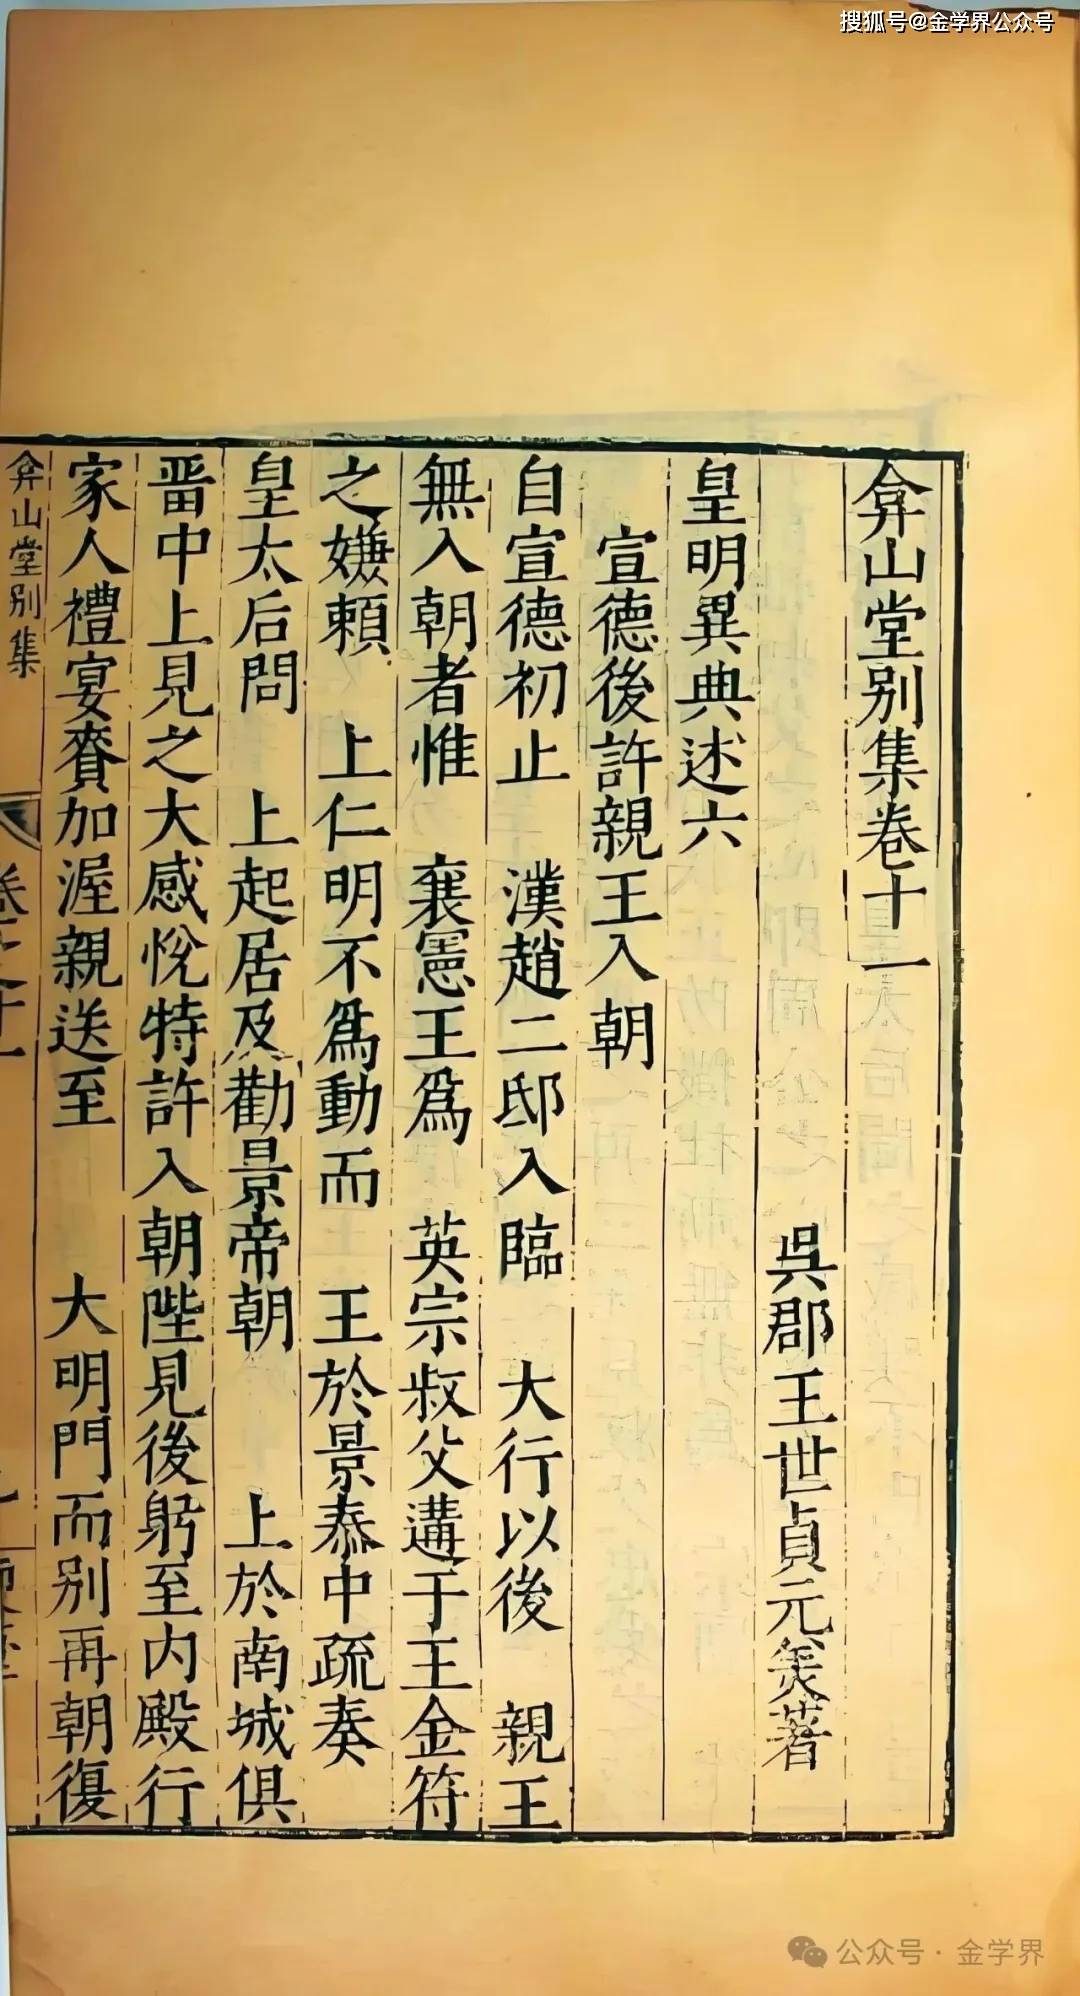 搜狐号@金学界公众号
弇山堂别集卷十一
吳郡王世貞元美著
皇明異典述六
宣德後許親王入朝
自宣德初止 漢趙二邸入臨 大行以後 親王
無入朝者惟 襄憲王爲 英宗叔父遘于王金符
之嫌頼 上仁明不爲動而 王於景泰中疏奏
皇太后問 上起居及勸景帝朝 上於南城俱
畱中上見之大感悅特許入朝陛見後躬至内殿行
家人禮宴賚加渥親送至 大明門而别再朝復
弇山堂别集
卷之十一
公众号·金学界